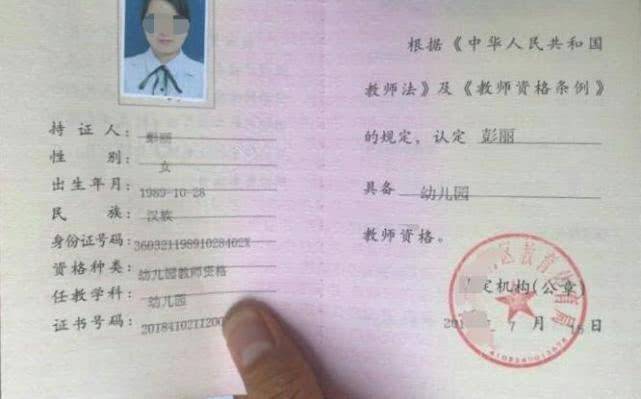 持证人：彭丽
性别：女
出生年月：1989-10-28
民族：汉族
身份证号码：36032119891028402X
资格种类：幼儿园教师资格
任教学科：幼儿园
证书号码：2018410211200
根据《中华人民共和国
教师法》及《教师资格条例》
的规定，认定 彭丽
具备 幼儿园
教师资格。
区教育体育局
定机构（公章）
7 月 16 日